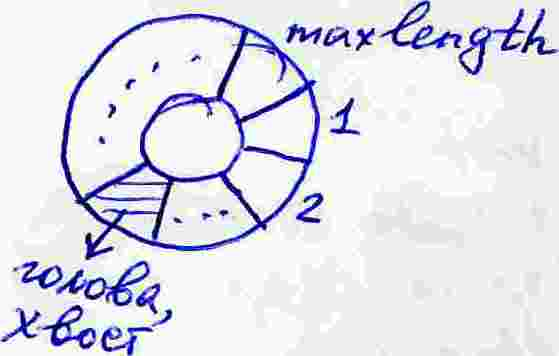 maxlength
1
2
голова,
хвост